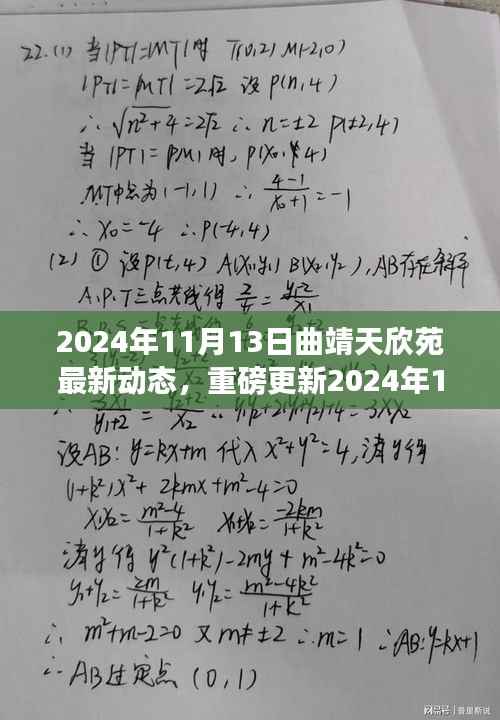 22.(1) 当|PT|=|MT|时 T(0,2) M(-2,0)
|PT|=|MT|=2√2 设P(n,4)
∴√n²+4=2√2 ∴n=±2 P(±2,4)
当|PT|=|PM|时,P(X₀,4)
MT中点为(-1,1) ∴ 4-1/X₀+1=-1
∴X₀=-4 ∴P(-4,4)
(2) ① 设P(t,4) A(X₁,y₁) B(X₂,y₂),AB存在斜率
A.P.T三点共线得
2024年11月13日曲靖天欣苑
最新动态，重磅更新2024年1
设AB:y=kx+m 代入x²+y²=4,消y得
(1+k²)X²+2kmx+m²-4=0
X₁X₂=m²-4/1+k² X₁+X₂=-2km/1+k²
消x得 y²(1+k²)-2my+m²-4k²=0
y₁+y₂=2m/1+k² y₁y₂=m²-4k²/1+k²
∴m²+m-2=0 又m≠±2 ∴m=1 ∴AB:y=kx+1
∴AB过定点(0,1)
搜狐号@普里斯说